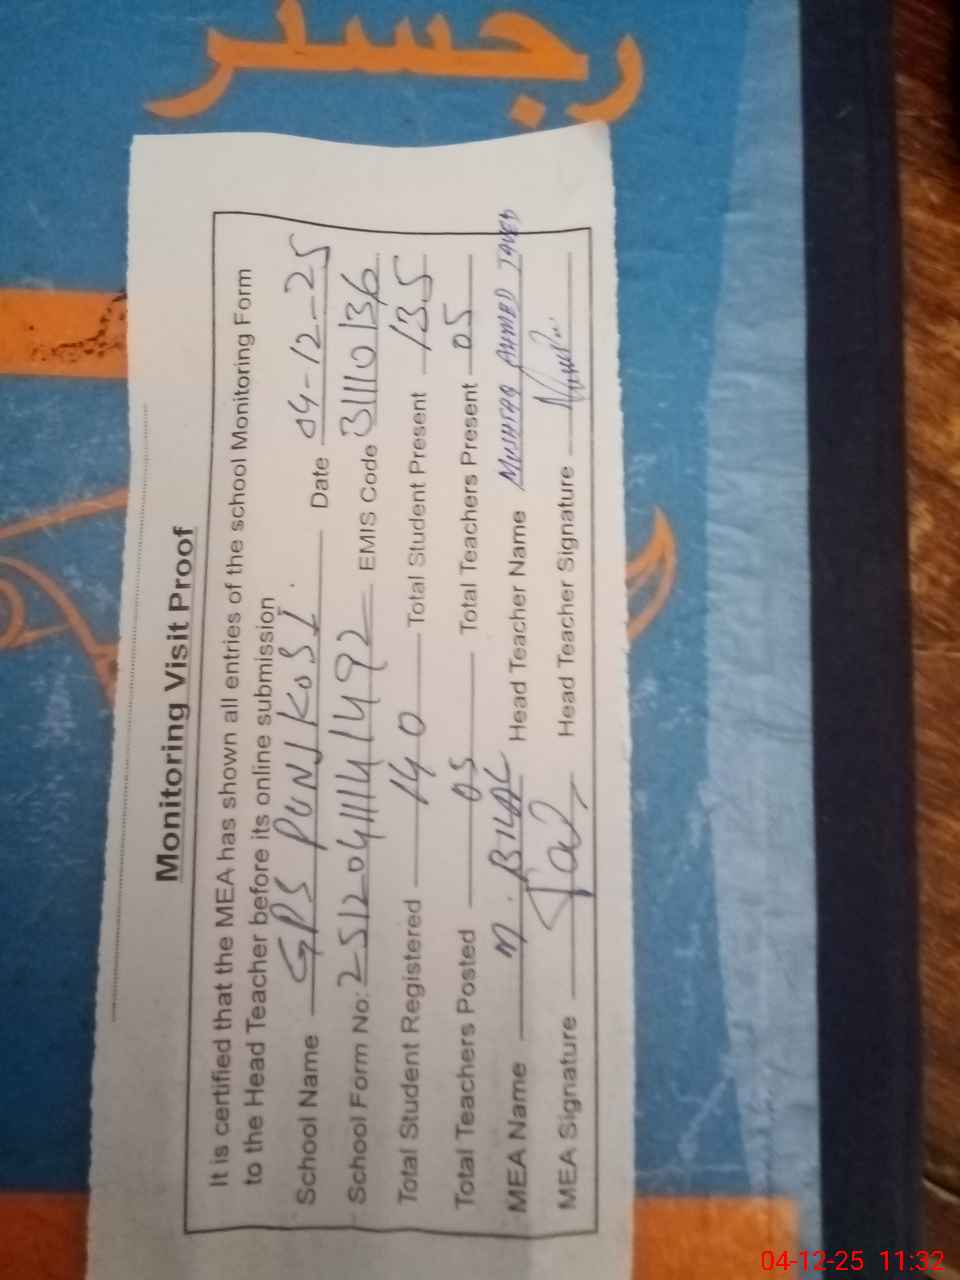 رجسٹر
Monitoring Visit Proof
It is certified that the MEA has shown all entries of the school Monitoring Form
to the Head Teacher before its online submission
School Name GPS PUNJ KOSI. Date 04-12-25
School Form No: 25120411141492 EMIS Code 31110136
Total Student Registered 140 Total Student Present 135
Total Teachers Posted 05 Total Teachers Present 05
MEA Name M. BILAL Head Teacher Name MUSHTAQ AHMED JAVED
MEA Signature Head Teacher Signature
04-12-25 11:32